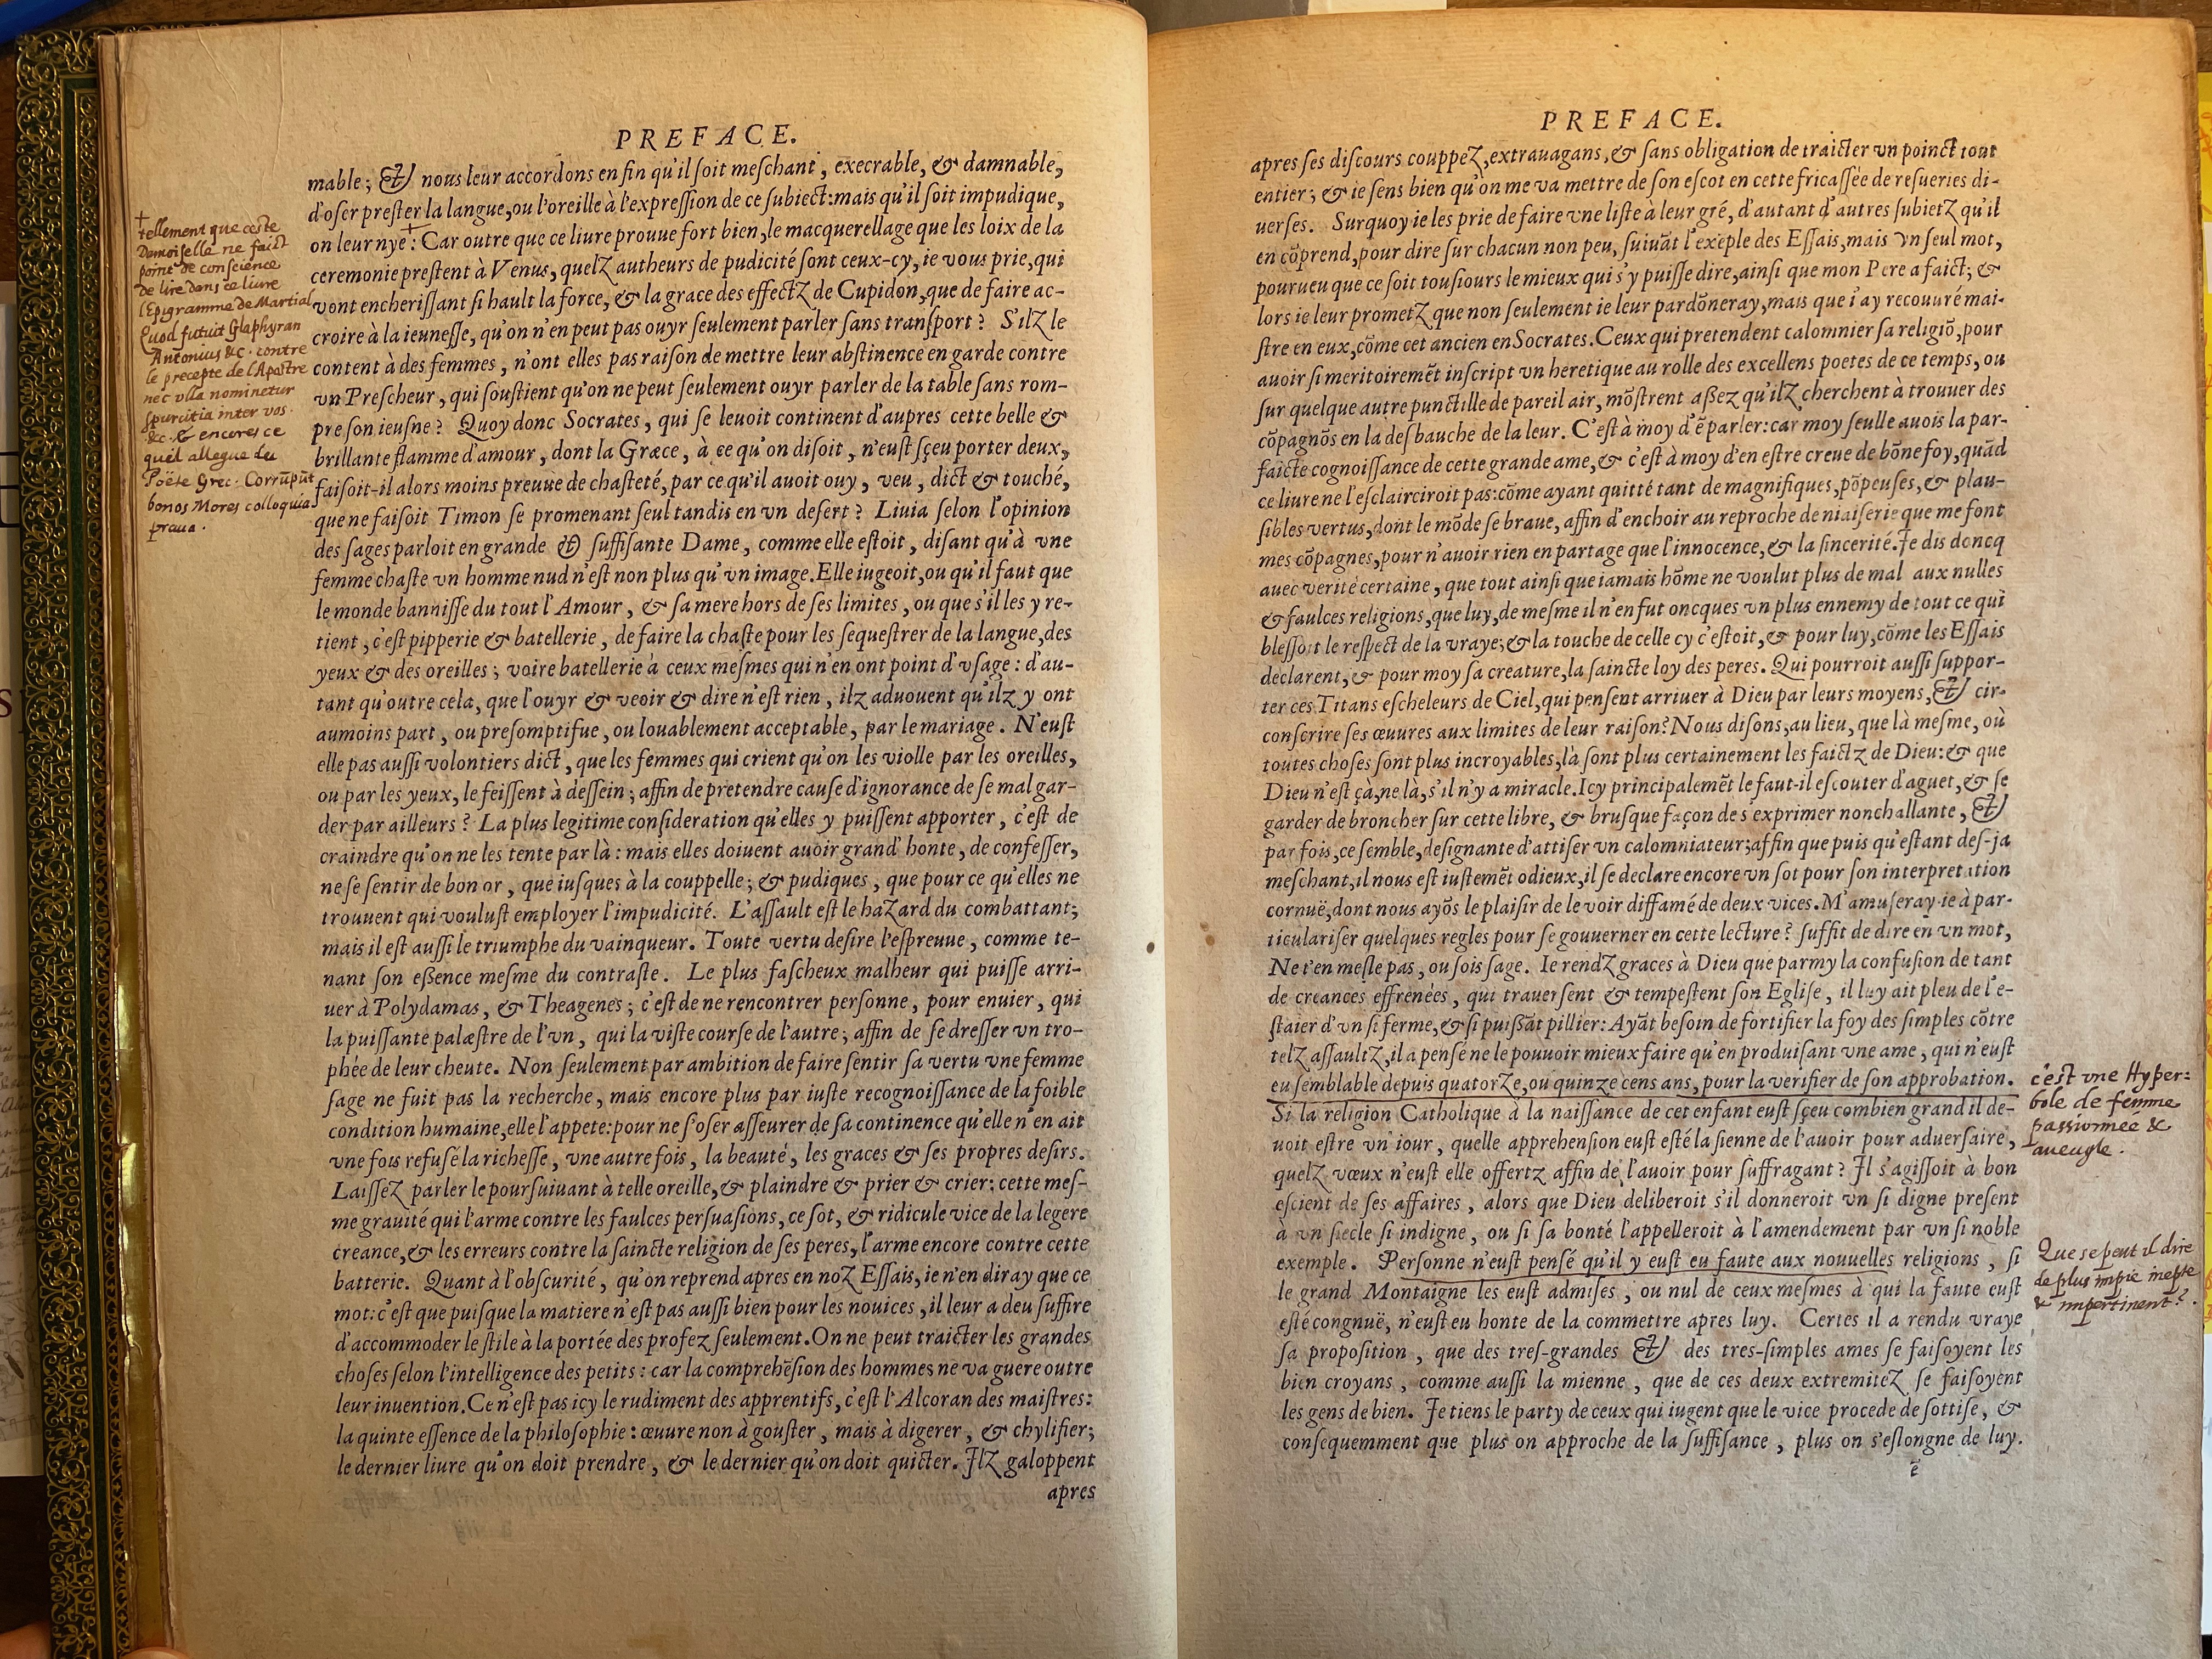 PREFACE.
mable; & nous leur accordons en fin qu'il soit meschant, execrable, & damnable,
d'oser prester la langue, ou l'oreille à l'expression de ce subiect: mais qu'il soit impudique,
on leur nye:+ Car outre que ce liure prouue fort bien, le macquerellage que les loix de la
ceremonie prestent à Venus, quelz autheurs de pudicité sont ceux-cy, ie vous prie, qui
vont encherissant si hault la force, & la grace des effectz de Cupidon, que de faire ac-
croire à la ieunesse, qu'on n'en peut pas ouyr seulement parler sans transport? S'ilz le
content à des femmes, n'ont elles pas raison de mettre leur abstinence en garde contre
vn Prescheur, qui soustient qu'on ne peut seulement ouyr parler de la table sans rom-
pre son ieusne? Quoy donc Socrates, qui se leuoit continent d'aupres cette belle &
brillante flamme d'amour, dont la Græce, à ce qu'on disoit, n'eust sçeu porter deux,
faisoit-il alors moins preuue de chasteté, par ce qu'il auoit ouy, veu, dict & touché,
que ne faisoit Timon se promenant seul tandis en vn desert? Liuia selon l'opinion
des sages parloit en grande & suffisante Dame, comme elle estoit, disant qu'à vne
femme chaste vn homme nud n'est non plus qu'vn image. Elle iugeoit, ou qu'il faut que
le monde bannisse du tout l'Amour, & sa mere hors de ses limites, ou que s'il les y re-
tient, c'est pipperie & batellerie, de faire la chaste pour les sequestrer de la langue, des
yeux & des oreilles; voire batellerie à ceux mesmes qui n'en ont point d'vsage: d'au-
tant qu'outre cela, que l'ouyr & veoir & dire n'est rien, ilz aduouent qu'ilz y ont
aumoins part, ou presomptifue, ou louablement acceptable, par le mariage. N'eust
elle pas aussi volontiers dict, que les femmes qui crient qu'on les violle par les oreilles,
ou par les yeux, le feissent à dessein; affin de pretendre cause d'ignorance de se mal gar-
der par ailleurs? La plus legitime consideration qu'elles y puissent apporter, c'est de
craindre qu'on ne les tente par là: mais elles doiuent auoir grand' honte, de confesser,
ne se sentir de bon or, que iusques à la couppelle; & pudiques, que pour ce qu'elles ne
trouuent qui voulust employer l'impudicité. L'assault est le hazard du combattant;
mais il est aussi le triumphe du vainqueur. Toute vertu desire l'espreuue, comme te-
nant son essence mesme du contraste. Le plus fascheux malheur qui puisse arri-
uer à Polydamas, & Theagenes; c'est de ne rencontrer personne, pour enuier, qui
la puissante palæstre de l'vn, qui la viste course de l'autre; affin de se dresser vn tro-
phée de leur cheute. Non seulement par ambition de faire sentir sa vertu vne femme
sage ne fuit pas la recherche, mais encore plus par iuste recognoissance de la foible
condition humaine, elle l'appete: pour ne s'oser asseurer de sa continence qu'elle n'en ait
vne fois refusé la richesse, vne autre fois, la beauté, les graces & ses propres desirs.
Laissez parler le poursuiuant à telle oreille, & plaindre & prier & crier: cette mes-
me grauité qui l'arme contre les faulces persuasions, ce sot, & ridicule vice de la legere
creance, & les erreurs contre la saincte religion de ses peres, l'arme encore contre cette
batterie. Quant à l'obscurité, qu'on reprend apres en noz Essais, ie n'en diray que ce
mot: c'est que puisque la matiere n'est pas aussi bien pour les nouices, il leur a deu suffire
d'accommoder le stile à la portée des profez seulement. On ne peut traicter les grandes
choses selon l'intelligence des petits: car la comprehẽsion des hommes ne va guere outre
leur inuention. Ce n'est pas icy le rudiment des apprentifs, c'est l'Alcoran des maistres:
la quinte essence de la philosophie: œuure non à gouster, mais à digerer, & chylifier;
le dernier liure qu'on doit prendre, & le dernier qu'on doit quicter. Ilz galoppent
apres
+
tellement que ceste
Damoiselle ne faict
point de conscience
de lire dans ce liure
l'Epigramme de Martial
Quod futuit Glaphyran
Antonius &c. contre
le precepte de l'Apostre
nec vlla nominetur
spurcitia inter vos.
&c. & encores ce
quil allegue du
Poëte Grec. Corrũpũt
bonos Mores colloquia
praua.
PREFACE.
apres ses discours couppez, extrauagans, & sans obligation de traicter vn poinct tout
entier; & ie sens bien qu'on me va mettre de son escot en cette fricassée de resueries di-
uerses. Surquoy ie les prie de faire vne liste à leur gré, d'autant d'autres subietz qu'il
en cõprend, pour dire sur chacun non peu, suiuãt l'exẽple des Essais, mais vn seul mot,
pourueu que ce soit tousiours le mieux qui s'y puisse dire, ainsi que mon Pere a faict; &
lors ie leur prometz que non seulement ie leur pardõneray, mais que i'ay recouuré mai-
stre en eux, cõme cet ancien en Socrates. Ceux qui pretendent calomnier sa religiõ, pour
auoir si meritoiremẽt inscript vn heretique au rolle des excellens poetes de ce temps, ou
sur quelque autre punctille de pareil air, mõstrent assez qu'ilz cherchent à trouuer des
cõpagnõs en la desbauche de la leur. C'est à moy d'ẽ parler: car moy seulle auois la par-
faicte cognoissance de cette grande ame, & c'est à moy d'en estre creue de bõne foy, quãd
ce liure ne l'esclairciroit pas: cõme ayant quitté tant de magnifiques, põpeuses, & plau-
sibles vertus, dont le mõde se braue, affin d'enchoir au reproche de niaiserie que me font
mes cõpagnes, pour n'auoir rien en partage que l'innocence, & la sincerité. Je dis doncq
auec verité certaine, que tout ainsi que iamais hõme ne voulut plus de mal aux nulles
& faulces religions, que luy, de mesme il n'en fut oncques vn plus ennemy de tout ce qui
blessoit le respect de la vraye; & la touche de celle cy c'estoit, & pour luy, cõme les Essais
declarent, & pour moy sa creature, la saincte loy des peres. Qui pourroit aussi suppor-
ter ces Titans escheleurs de Ciel, qui pensent arriuer à Dieu par leurs moyens, & cir-
conscrire ses œuures aux limites de leur raison? Nous disons, au lieu, que là mesme, où
toutes choses sont plus incroyables, là sont plus certainement les faictz de Dieu: & que
Dieu n'est çà, ne là, s'il n'y a miracle. Icy principalemẽt le faut-il escouter d'aguet, & se
garder de broncher sur cette libre, & brusque façon de s'exprimer nonchallante, &
par fois, ce semble, designante d'attiser vn calomniateur; affin que puis qu'estant des-ja
meschant, il nous est iustemẽt odieux, il se declare encore vn sot pour son interpretation
cornuë, dont nous ayõs le plaisir de le voir diffamé de deux vices. M'amuseray-ie à par-
ticulariser quelques regles pour se gouuerner en cette lecture? suffit de dire en vn mot,
Ne t'en mesle pas, ou sois sage. Ie rendz graces à Dieu que parmy la confusion de tant
de creances effrenées, qui trauersent & tempestent son Eglise, il luy ait pleu de l'e-
staier d'vn si ferme, & si puissãt pillier: Ayãt besoin de fortifier la foy des simples cõtre
telz assaultz, il a pensé ne le pouuoir mieux faire qu'en produisant vne ame, qui n'eust
eu semblable depuis quatorze, ou quinze cens ans, pour la verifier de son approbation.
Si la religion Catholique à la naissance de cet enfant eust sçeu combien grand il de-
uoit estre vn iour, quelle apprehension eust esté la sienne de l'auoir pour aduersaire,
quelz vœux n'eust elle offertz affin de l'auoir pour suffragant? Il s'agissoit à bon
escient de ses affaires, alors que Dieu deliberoit s'il donneroit vn si digne present
à vn siecle si indigne, ou si sa bonté l'appelleroit à l'amendement par vn si noble
exemple. Personne n'eust pensé qu'il y eust eu faute aux nouuelles religions, si
le grand Montaigne les eust admises, ou nul de ceux mesmes à qui la faute eust
esté congnuë, n'eust eu honte de la commettre apres luy. Certes il a rendu vraye
sa proposition, que des tres-grandes & des tres-simples ames se faisoyent les
bien croyans, comme aussi la mienne, que de ces deux extremitez se faisoyent
les gens de bien. Je tiens le party de ceux qui iugent que le vice procede de sottise, &
consequemment que plus on approche de la suffisance, plus on s'eslongne de luy.
ẽ
c'est vne Hyper:
bole de femme
passionnée &
aueugle.
Que se peut il dire
de plus impie inepte
& impertinent?